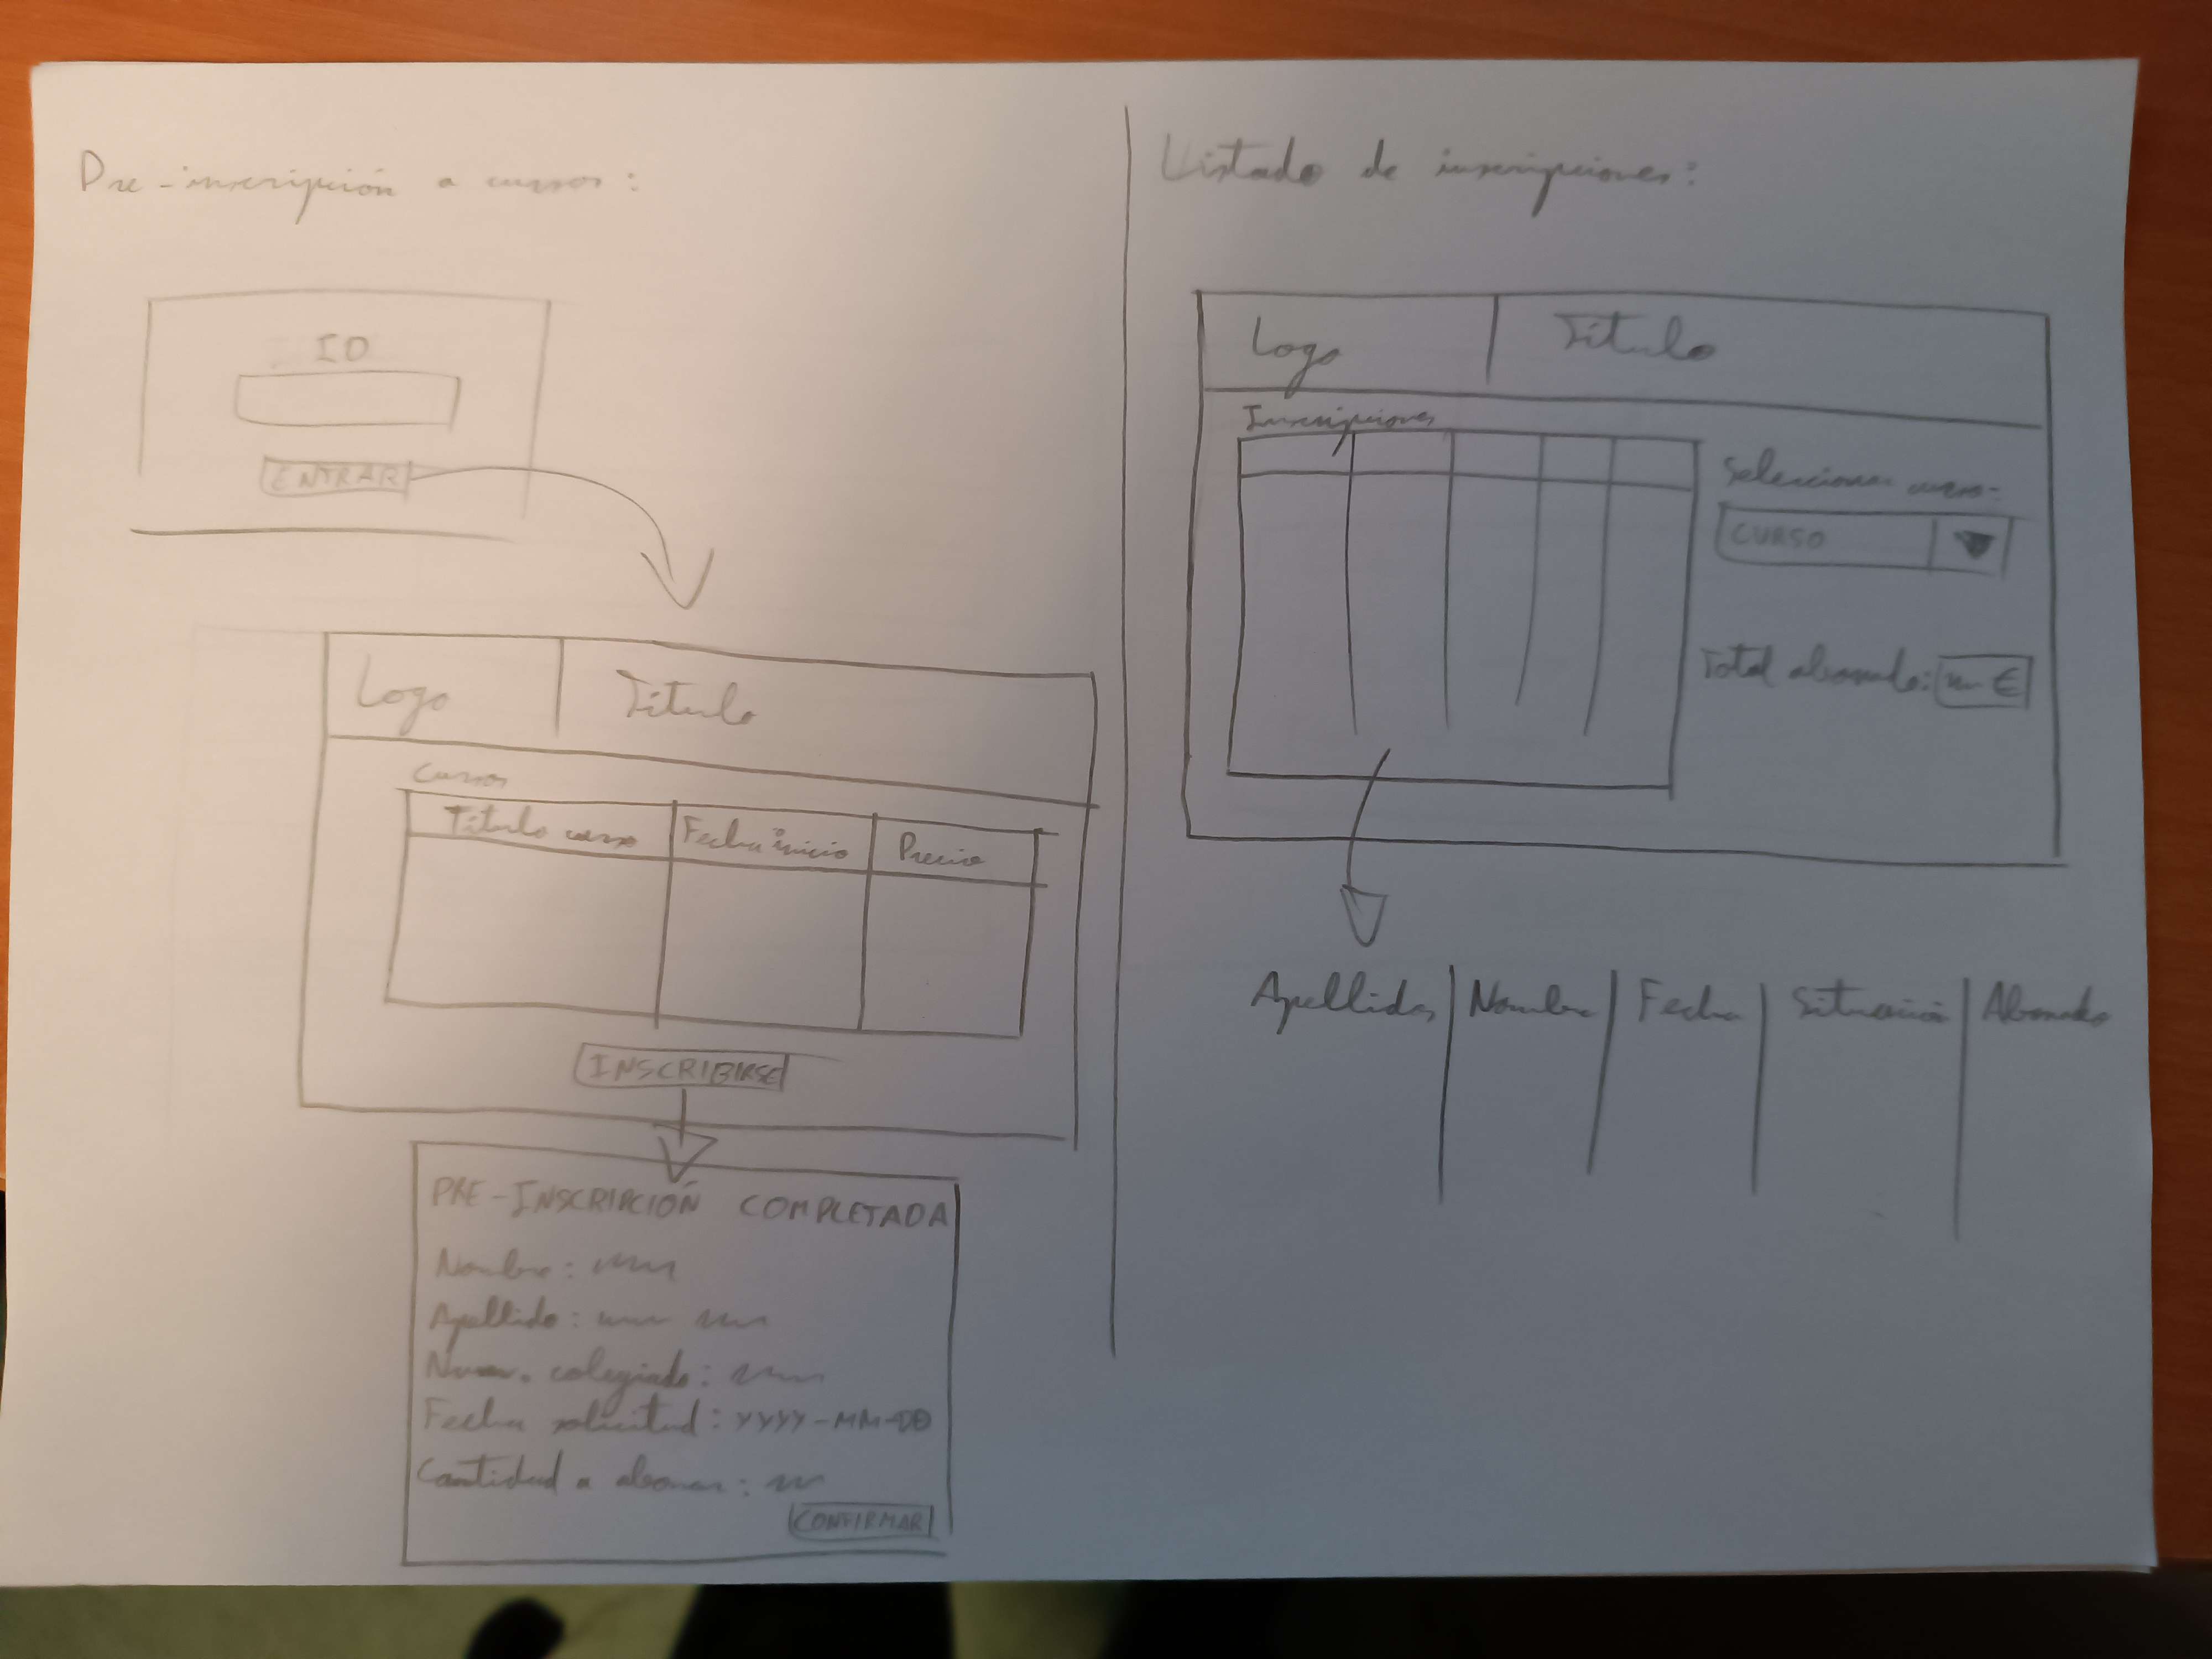 Pre-inscripción a cursos:
ID
ENTRAR
Logo
Título
Cursos
Título curso
Fecha inicio
Precio
INSCRIBIRSE
PRE-INSCRIPCIÓN COMPLETADA
Nombre:
Apellido:
Num. colegiado:
Fecha solicitud: YYYY-MM-DD
Cantidad a abonar:
CONFIRMAR
Listado de inscripciones:
Logo
Título
Inscripciones
Seleccionar curso:
CURSO
Total abonado: €
Apellidos
Nombre
Fecha
Situación
Abonado